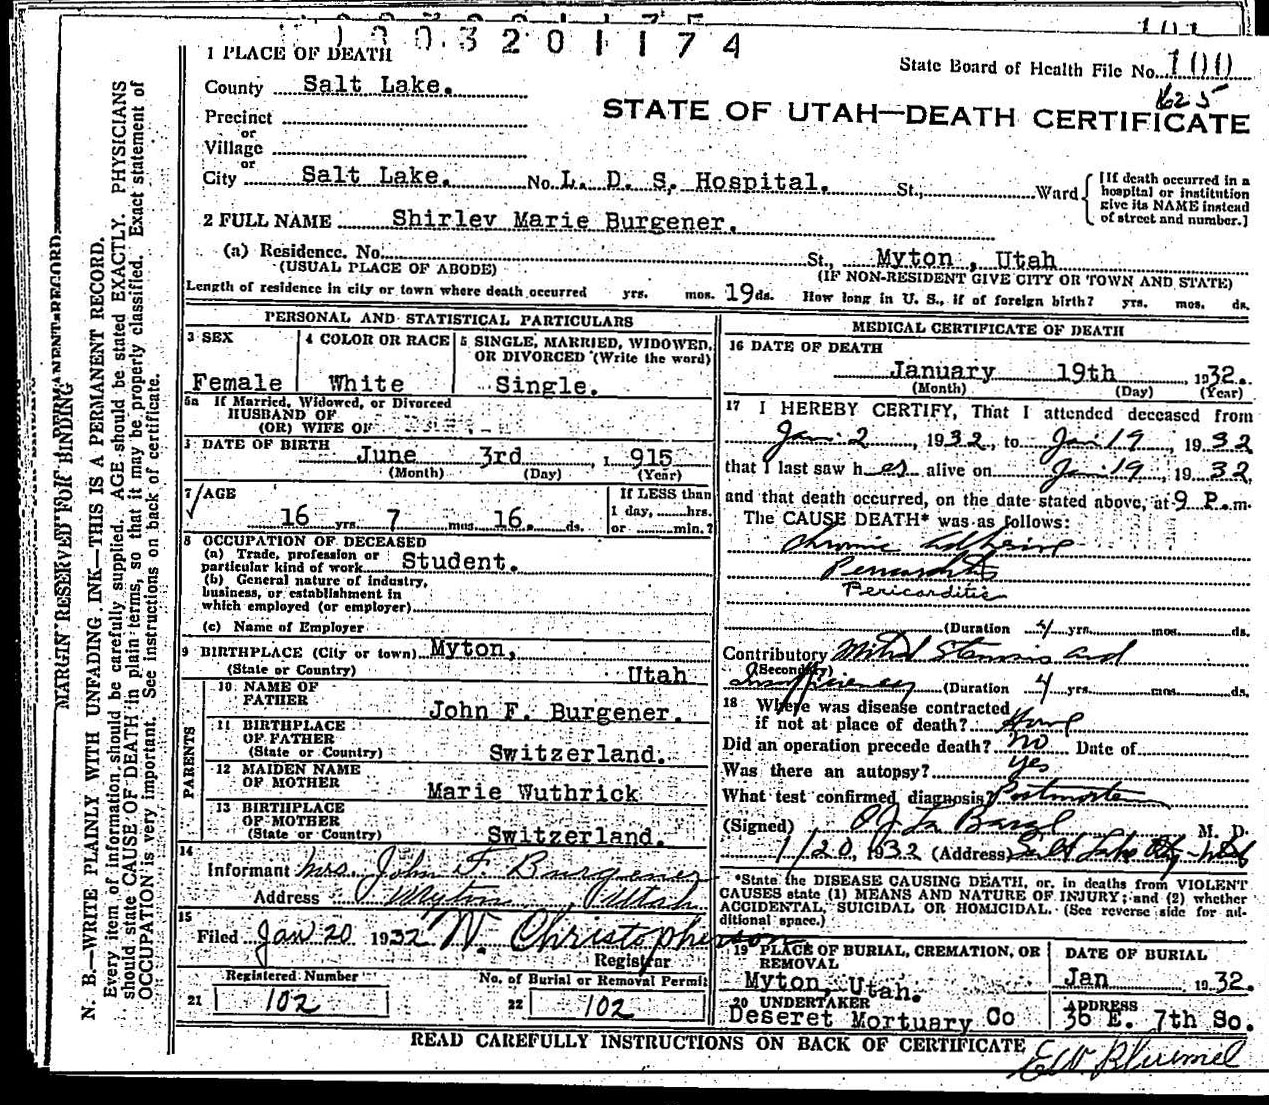 1903201174
101
1 PLACE OF DEATH
State Board of Health File No. 100
625
County Salt Lake.
STATE OF UTAH—DEATH CERTIFICATE
Precinct
or
Village
or
City Salt Lake. No. L. D. S. Hospital. St., Ward
[If death occurred in a hospital or institution give its NAME instead of street and number.]
2 FULL NAME Shirley Marie Burgener.
(a) Residence. No. St., Myton , Utah
(USUAL PLACE OF ABODE) (IF NON-RESIDENT GIVE CITY OR TOWN AND STATE)
Length of residence in city or town where death occurred yrs. mos. 19 ds. How long in U. S., if of foreign birth? yrs. mos. ds.
PERSONAL AND STATISTICAL PARTICULARS
3 SEX 4 COLOR OR RACE 5 SINGLE, MARRIED, WIDOWED,
OR DIVORCED (Write the word)
Female White Single.
5a If Married, Widowed, or Divorced
HUSBAND OF
(OR) WIFE OF
DATE OF BIRTH
June 3rd , 1915
(Month) (Day) (Year)
7 AGE If LESS than
1 day, hrs.
16 yrs. 7 mos. 16. ds. or min.?
8 OCCUPATION OF DECEASED
(a) Trade, profession or
particular kind of work Student.
(b) General nature of industry,
business, or establishment in
which employed (or employer)
(c) Name of Employer
9 BIRTHPLACE (City or town) Myton,
(State or Country) Utah
PARENTS
10 NAME OF
FATHER John F. Burgener.
11 BIRTHPLACE
OF FATHER
(State or Country) Switzerland.
12 MAIDEN NAME
OF MOTHER Marie Wuthrick
13 BIRTHPLACE
OF MOTHER
(State or Country) Switzerland.
14
Informant Mrs. John F. Burgener
Address Myton, Utah
15
Filed Jan 20 1932 W. Christopherson
Registrar
Registered Number No. of Burial or Removal Permit
21 102 22 102
MEDICAL CERTIFICATE OF DEATH
16 DATE OF DEATH
January 19th , 1932.
(Month) (Day) (Year)
17 I HEREBY CERTIFY, That I attended deceased from
Jan. 2, 1932, to Jan 19, 1932
that I last saw her alive on Jan. 19, 1932,
and that death occurred, on the date stated above, at 9 P. m.
The CAUSE DEATH* was as follows:
Chronic Adhesive
Pericarditis
(Duration 4 yrs. mos. ds.
Contributory Mitral Stenosis and
(Secondary)
Insufficiency (Duration 4 yrs. mos. ds.
18 Where was disease contracted
if not at place of death? Home
Did an operation precede death? no Date of
Was there an autopsy? yes
What test confirmed diagnosis? Postmortem
(Signed) O J La Barge M. D.
1/20, 1932 (Address) Salt Lake City Utah
*State the DISEASE CAUSING DEATH, or, in deaths from VIOLENT
CAUSES state (1) MEANS AND NATURE OF INJURY; and (2) whether
ACCIDENTAL, SUICIDAL OR HOMICIDAL. (See reverse side for additional space.)
19 PLACE OF BURIAL, CREMATION, OR
REMOVAL
Myton, Utah.
DATE OF BURIAL
Jan 1932.
20 UNDERTAKER
Deseret Mortuary Co
ADDRESS
36 E. 7th So.
READ CAREFULLY INSTRUCTIONS ON BACK OF CERTIFICATE
MARGIN RESERVED FOR BINDING
N. B.—WRITE PLAINLY WITH UNFADING INK—THIS IS A PERMANENT RECORD.
Every item of information should be carefully supplied. AGE should be stated EXACTLY. PHYSICIANS
should state CAUSE OF DEATH in plain terms, so that it may be properly classified. Exact statement of
OCCUPATION is very important. See instructions on back of certificate.